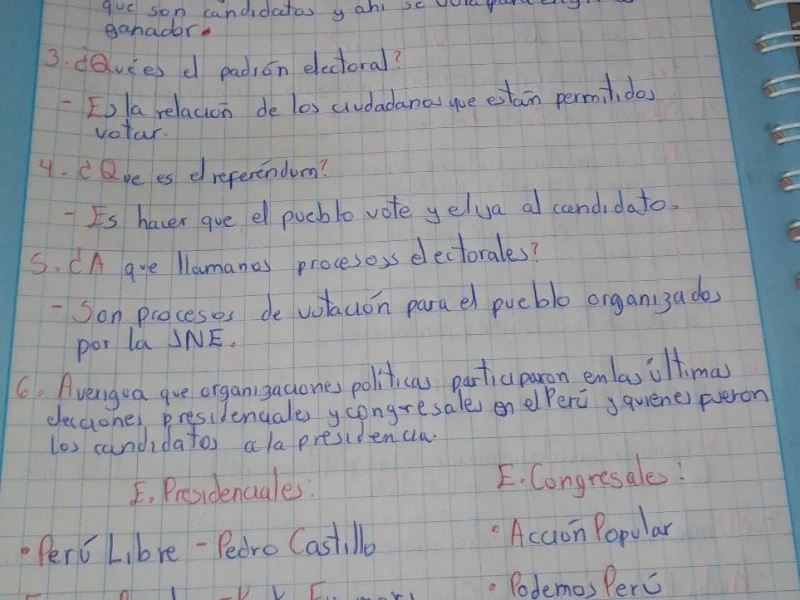 que son candidatos y ahi se
ganador.
3. ¿Qué es el padrón electoral?
- Es la relación de los ciudadanos que están permitidos
votar.
4. ¿Que es el referéndum?
- Es hacer que el pueblo vote y elija al candidato.
5. ¿A que llamanos procesoss electorales?
- Son procesos de votación para el pueblo organizados
por la JNE.
6. Averigua que organizaciones políticas participaron en las últimas
elecciones presidenciales y congresales en el Perú y quienes fueron
los candidatos a la presidencia.
E. Presidenciales:
E. Congresales:
• Perú Libre - Pedro Castillo
• Acción Popular
• Podemos Perú